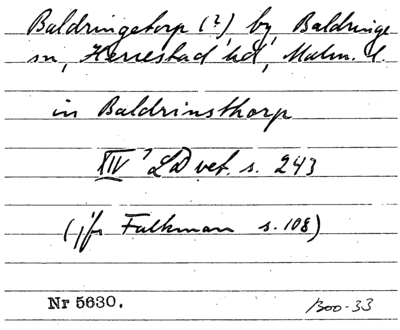 Baldringetorp (?), by, Baldringe
sn, Herrestad hd, Malm. l.
in Baldrinsthorp
XIV LD vet. s. 243
(jfr Falkman s. 108)
Nr 5630.
1300-33